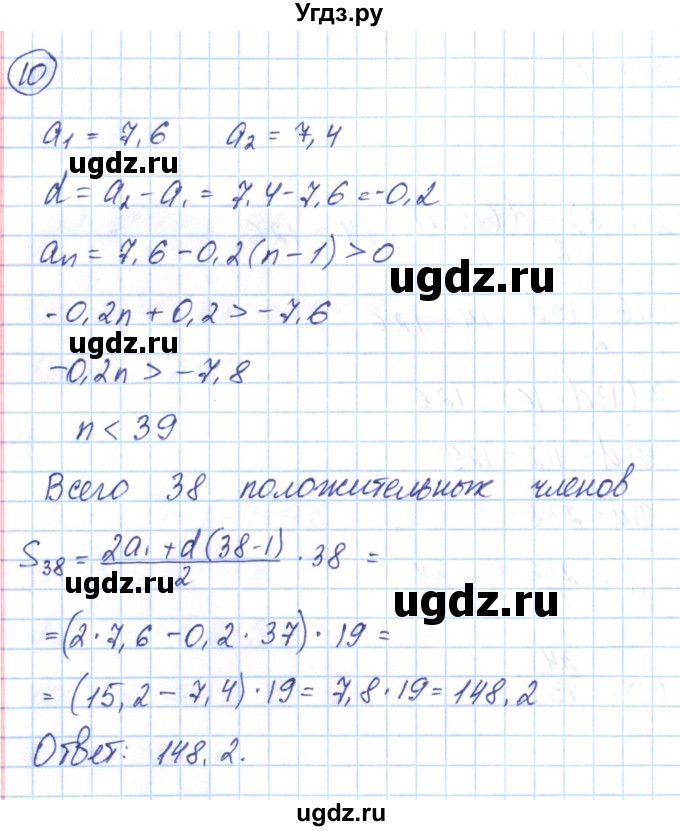 Угдз.ру
10
a₁ = 7,6 a₂ = 7,4
ugdz.ru
d = a₂ - a₁ = 7,4 - 7,6 = -0,2
aₙ = 7,6 - 0,2(n - 1) > 0
ugdz.ru
-0,2n + 0,2 > -7,6
ugdz.ru
-0,2n > -7,8
n < 39
Всего 38 положительных членов
S₃₈ = (2a₁ + d(38-1))/2 · 38 =
ugdz.ru
ugdz.ru
= (2 · 7,6 - 0,2 · 37) · 19 =
= (15,2 - 7,4) · 19 = 7,8 · 19 = 148,2
Ответ: 148,2.
ugdz.ru